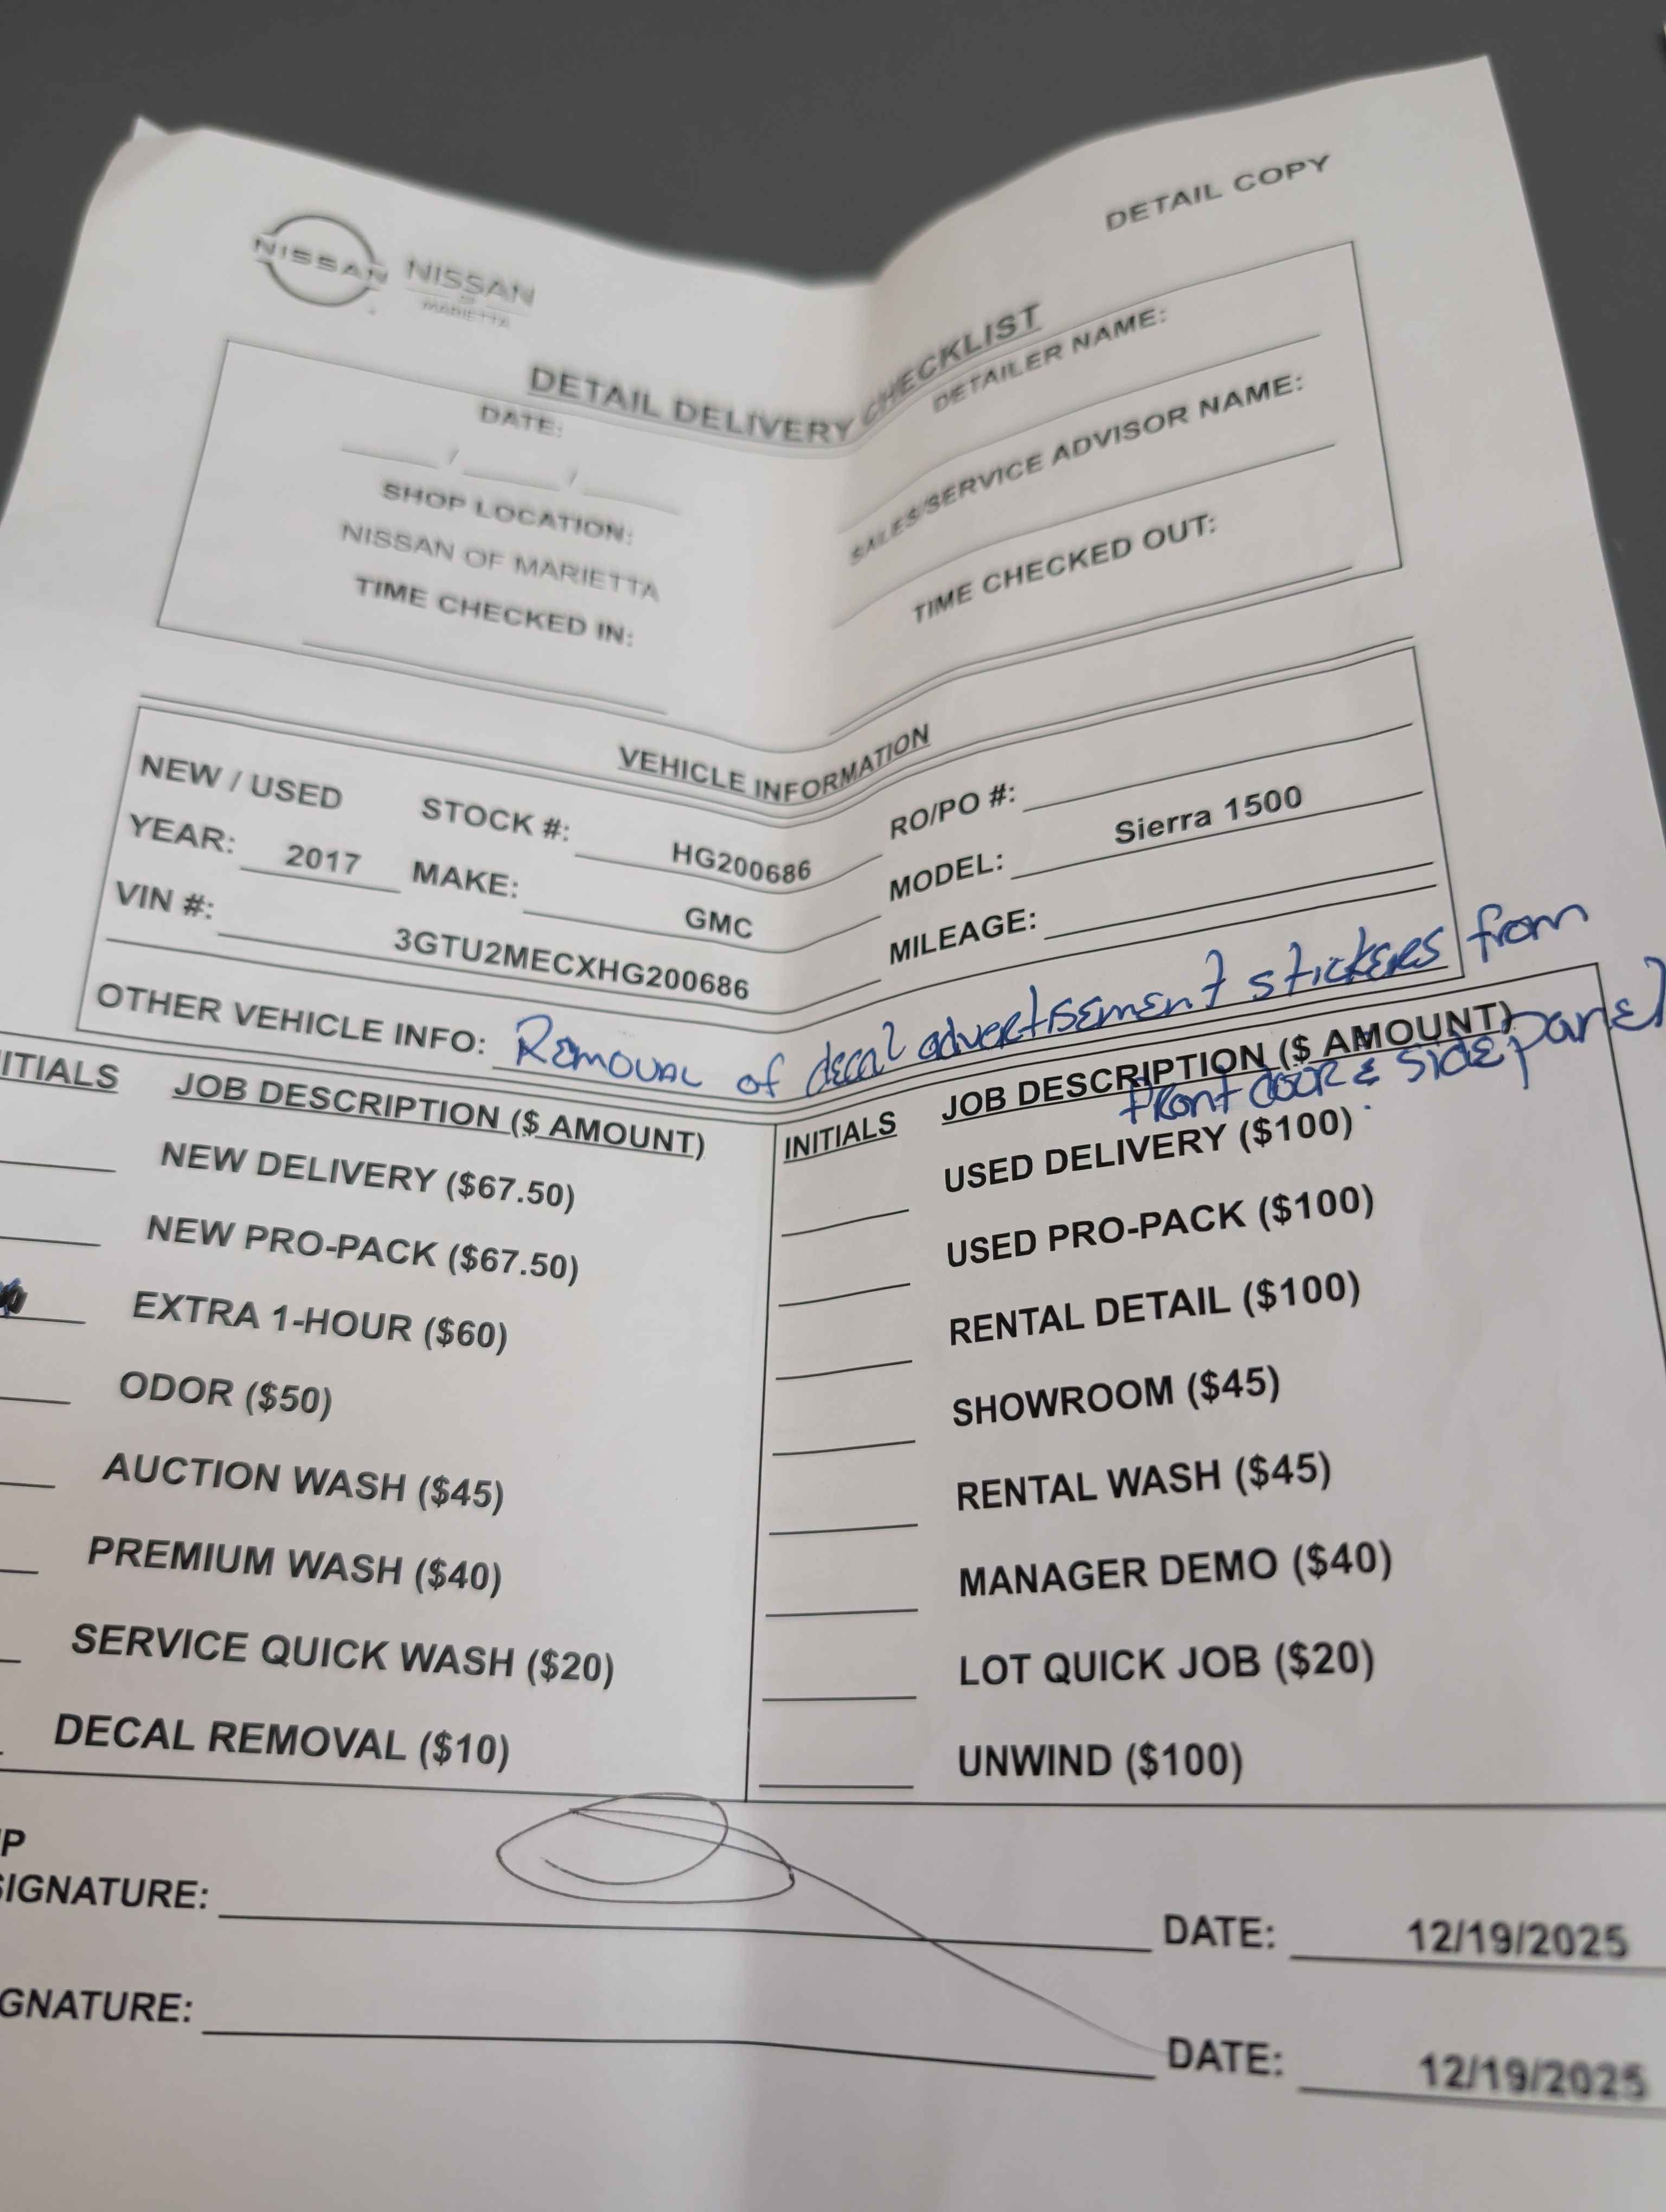 DETAIL COPY
NISSAN
NISSAN
OF
MARIETTA
DETAIL DELIVERY CHECKLIST
DATE:
/ /
SHOP LOCATION:
NISSAN OF MARIETTA
TIME CHECKED IN:
DETAILER NAME:
SALES/SERVICE ADVISOR NAME:
TIME CHECKED OUT:
VEHICLE INFORMATION
NEW / USED STOCK #: HG200686 RO/PO #:
YEAR: 2017 MAKE: GMC MODEL: Sierra 1500
VIN #: 3GTU2MECXHG200686 MILEAGE:
OTHER VEHICLE INFO: Removal of decal advertisement stickers from
front door & side panel
ITIALS JOB DESCRIPTION ($ AMOUNT)
NEW DELIVERY ($67.50)
NEW PRO-PACK ($67.50)
EXTRA 1-HOUR ($60)
ODOR ($50)
AUCTION WASH ($45)
PREMIUM WASH ($40)
SERVICE QUICK WASH ($20)
DECAL REMOVAL ($10)
INITIALS JOB DESCRIPTION ($ AMOUNT)
USED DELIVERY ($100)
USED PRO-PACK ($100)
RENTAL DETAIL ($100)
SHOWROOM ($45)
RENTAL WASH ($45)
MANAGER DEMO ($40)
LOT QUICK JOB ($20)
UNWIND ($100)
P
SIGNATURE: DATE: 12/19/2025
GNATURE: DATE: 12/19/2025